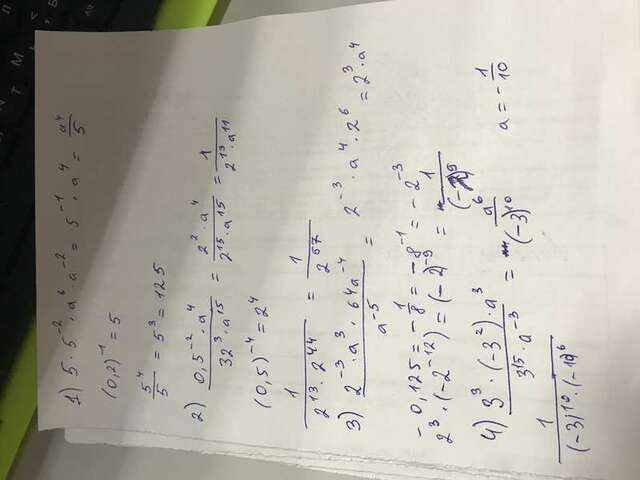 1) 5 · 5⁻² · a⁶ · a⁻² = 5⁻¹ · a⁴ = a⁴/5
(0,2)⁻¹ = 5
5⁴/5 = 5³ = 125
2) (0,5⁻² · a⁴)/(32³ · a¹⁵) = (2² · a⁴)/(2¹⁵ · a¹⁵) = 1/(2¹³ · a¹¹)
(0,5)⁻⁴ = 2⁴
1/(2¹³ · 2⁴⁴) = 1/2⁶⁷
3) (2⁻³ · a³ · 64a⁻⁴)/a⁻⁵ = 2⁻³ · a⁴ · 2⁶ = 2³ · a⁴
- 0,125 = - 1/8 = -8⁻¹ = - 2⁻³
2³ · (-2⁻¹²) = (-2)⁻⁹ = 1/(-2)⁹
4) (3³ · (-3²) · a³)/(3¹⁵ · a⁻³) = a⁶/(-3)¹⁰ a = - 1/10
1/((-3)¹⁰ · (-10)⁶